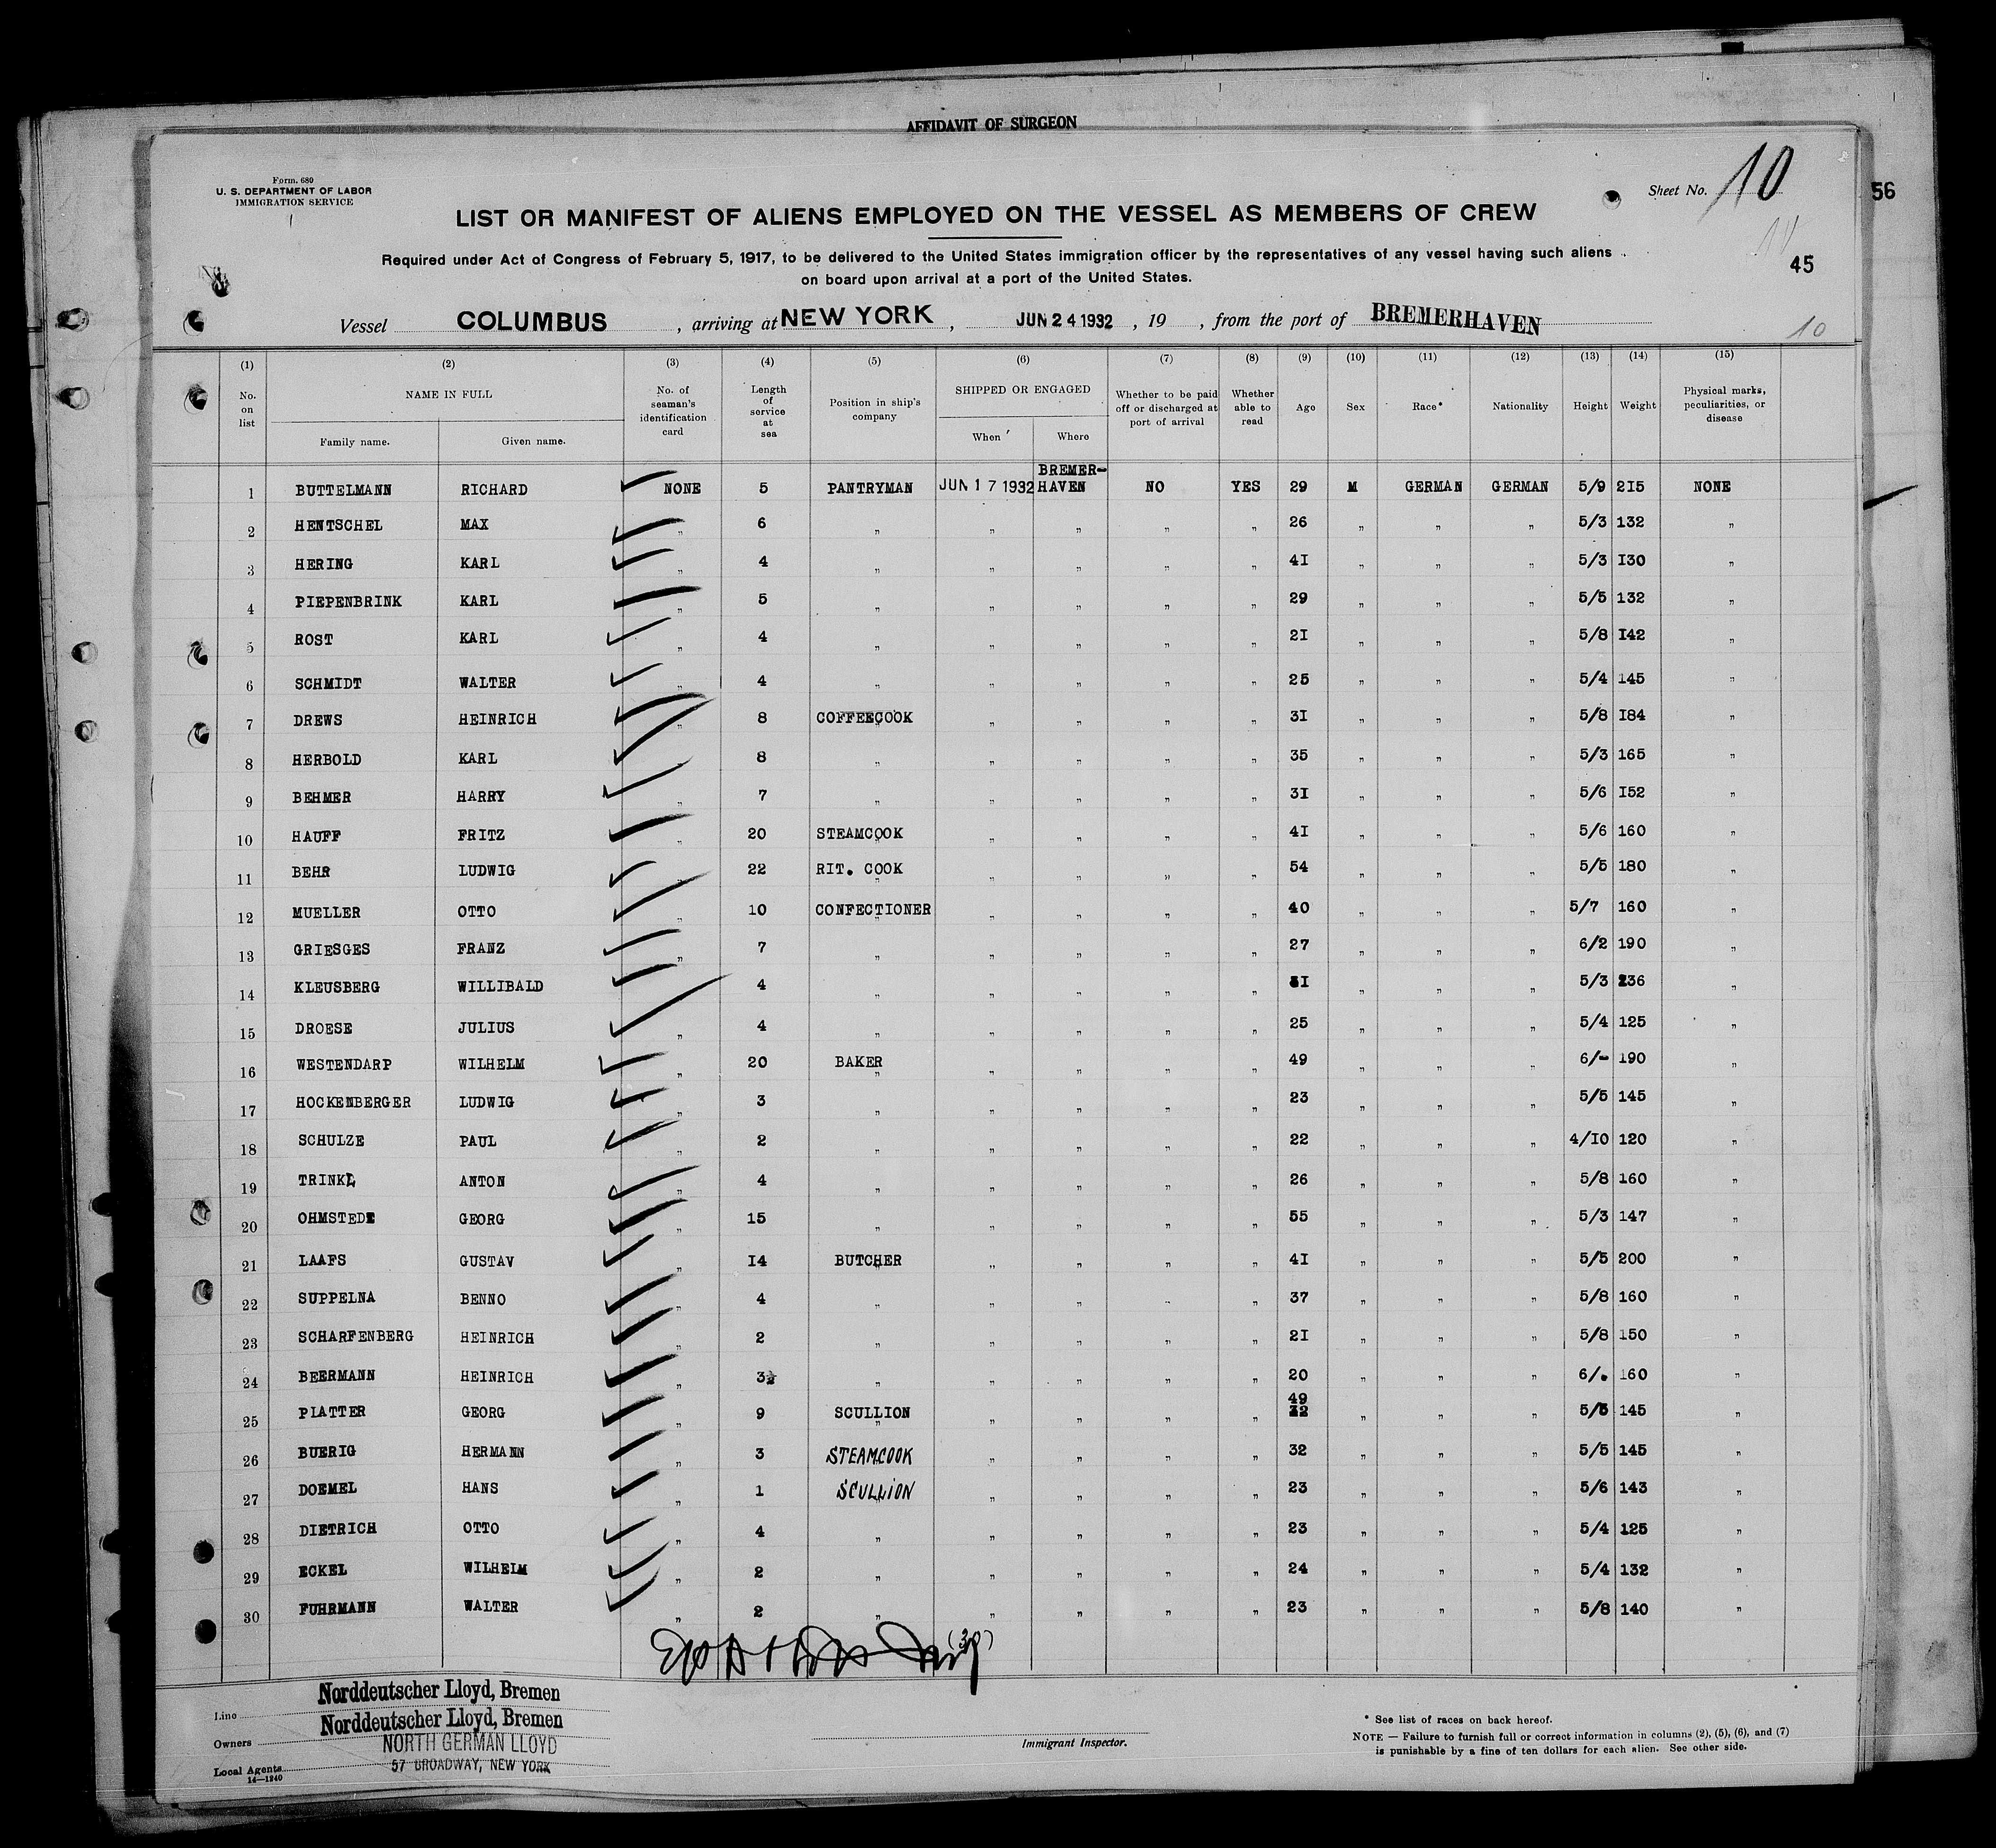 AFFIDAVIT OF SURGEON
Form. 680
U. S. DEPARTMENT OF LABOR
IMMIGRATION SERVICE
Sheet No. 10
56
LIST OR MANIFEST OF ALIENS EMPLOYED ON THE VESSEL AS MEMBERS OF CREW
Required under Act of Congress of February 5, 1917, to be delivered to the United States immigration officer by the representatives of any vessel having such aliens
on board upon arrival at a port of the United States.
45
Vessel COLUMBUS , arriving at NEW YORK , JUN 24 1932 , 19 , from the port of BREMERHAVEN
10
(1) (2) (3) (4) (5) (6) (7) (8) (9) (10) (11) (12) (13) (14) (15)
No. on list NAME IN FULL Family name. Given name. No. of seaman's identification card Length of service at sea Position in ship's company SHIPPED OR ENGAGED When Where Whether to be paid off or discharged at port of arrival Whether able to read Age Sex Race* Nationality Height Weight Physical marks, peculiarities, or disease
1 BUTTELMANN RICHARD NONE 5 PANTRYMAN JUN 17 1932 BREMER-HAVEN NO YES 29 M GERMAN GERMAN 5/9 215 NONE
2 HENTSCHEL MAX " 6 " " " " " 26 " " " 5/3 132 "
3 HERING KARL " 4 " " " " " 41 " " " 5/3 130 "
4 PIEPENBRINK KARL " 5 " " " " " 29 " " " 5/5 132 "
5 ROST KARL " 4 " " " " " 21 " " " 5/8 142 "
6 SCHMIDT WALTER " 4 " " " " " 25 " " " 5/4 145 "
7 DREWS HEINRICH " 8 COFFEECOOK " " " " 31 " " " 5/8 184 "
8 HERBOLD KARL " 8 " " " " " 35 " " " 5/3 165 "
9 BEHMER HARRY " 7 " " " " " 31 " " " 5/6 152 "
10 HAUFF FRITZ " 20 STEAMCOOK " " " " 41 " " " 5/6 160 "
11 BEHR LUDWIG " 22 RIT. COOK " " " " 54 " " " 5/5 180 "
12 MUELLER OTTO " 10 CONFECTIONER " " " " 40 " " " 5/7 160 "
13 GRIESGES FRANZ " 7 " " " " " 27 " " " 6/2 190 "
14 KLEUSBERG WILLIBALD " 4 " " " " " " " " 5/3 236 "
15 DROESE JULIUS " 4 " " " " " 25 " " " 5/4 125 "
16 WESTENDARP WILHELM " 20 BAKER " " " " 49 " " " 6/- 190 "
17 HOCKENBERGER LUDWIG " 3 " " " " " 23 " " " 5/5 145 "
18 SCHULZE PAUL " 2 " " " " " 22 " " " 4/10 120 "
19 TRINKL ANTON " 4 " " " " " 26 " " " 5/8 160 "
20 OHMSTEDE GEORG " 15 " " " " " 55 " " " 5/3 147 "
21 LAAFS GUSTAV " 14 BUTCHER " " " " 41 " " " 5/5 200 "
22 SUPPELNA BENNO " 4 " " " " " 37 " " " 5/8 160 "
23 SCHARFENBERG HEINRICH " 2 " " " " " 21 " " " 5/8 150 "
24 BEERMANN HEINRICH " 3 " " " " " 20 " " " 6/. 160 "
25 PLATTER GEORG " 9 SCULLION " " " " 49 " " " 5/5 145 "
26 BUERIG HERMANN " 3 STEAMCOOK " " " " 32 " " " 5/5 145 "
27 DOEMEL HANS " 1 SCULLION " " " " 23 " " " 5/6 143 "
28 DIETRICH OTTO " 4 " " " " " 23 " " " 5/4 125 "
29 ECKEL WILHELM " 2 " " " " " 24 " " " 5/4 132 "
30 FUHRMANN WALTER " 2 " " " " " 23 " " " 5/8 140 "
(30)
Line Norddeutscher Lloyd, Bremen
Owners Norddeutscher Lloyd, Bremen
NORTH GERMAN LLOYD
Local Agents 57 BROADWAY, NEW YORK
14—1240
Immigrant Inspector.
* See list of races on back hereof.
NOTE — Failure to furnish full or correct information in columns (2), (5), (6), and (7)
is punishable by a fine of ten dollars for each alien. See other side.